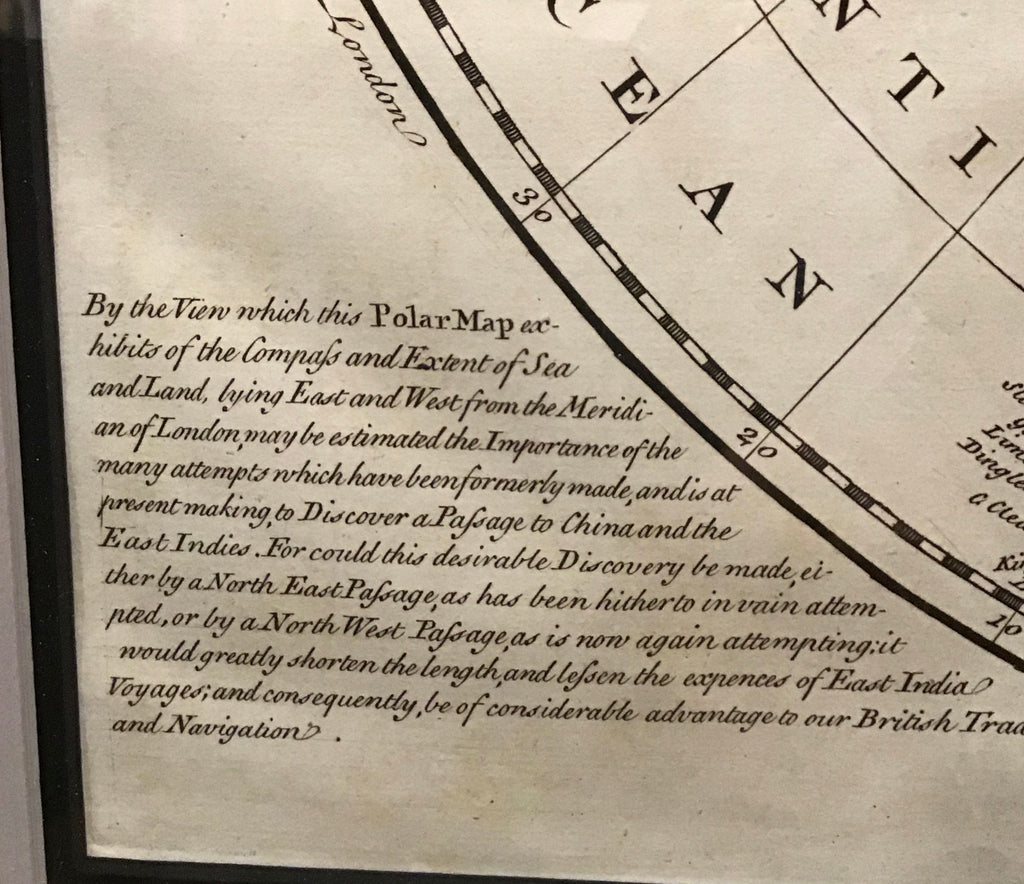 London
C
E
A
N
N
T
I
30
20
10
By the View which this Polar Map ex-
hibits of the Compaſs and Extent of Sea
and Land, lying East and West from the Meridi-
an of London, may be estimated the Importance of the
many attempts which have been formerly made, and is at
present making, to Discover a Paſsage to China and the
East Indies. For could this desirable Discovery be made, ei-
ther by a North East Paſsage, as has been hitherto in vain attem-
pted, or by a North West Paſsage, as is now again attempting; it
would greatly shorten the length, and leſsen the expences of East India
Voyages; and consequently, be of considerable advantage to our British Trad
and Navigation.
Dingle
a Clea